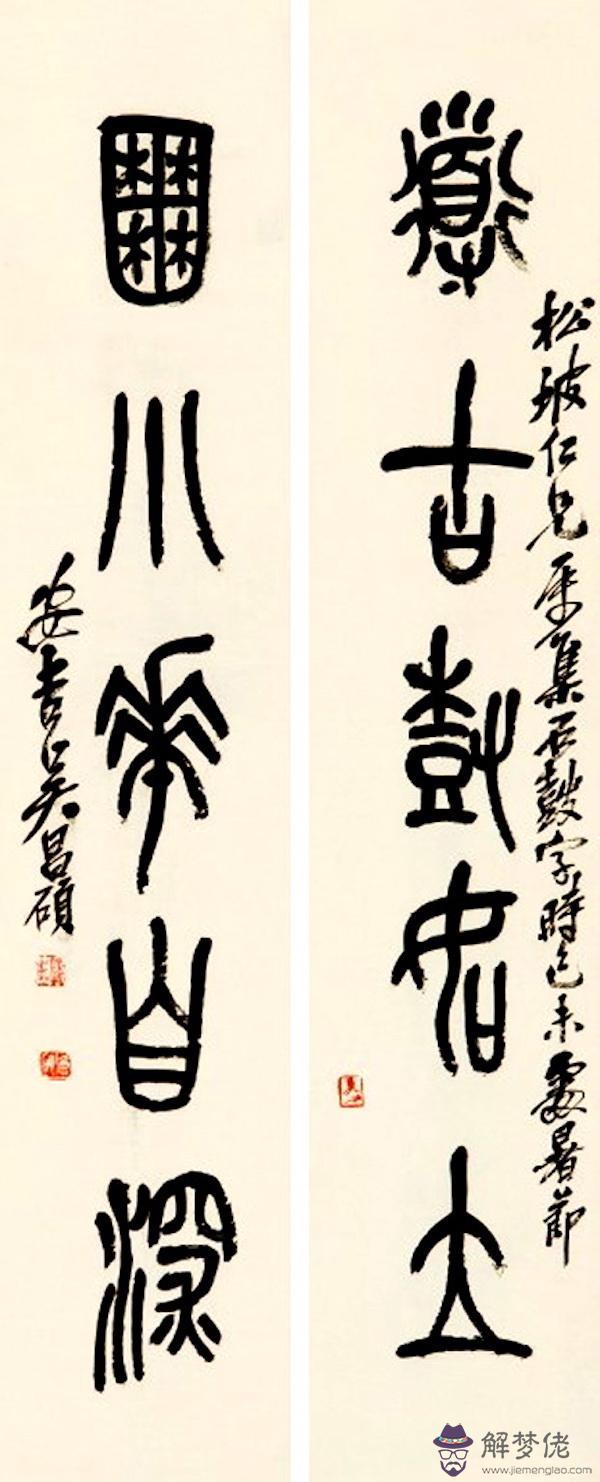 導古尌如立
松坡仁兄屬集石鼓字時己未處暑節
囿小華自深
安吉吴昌碩
解梦佬
www.jiemenglao.com